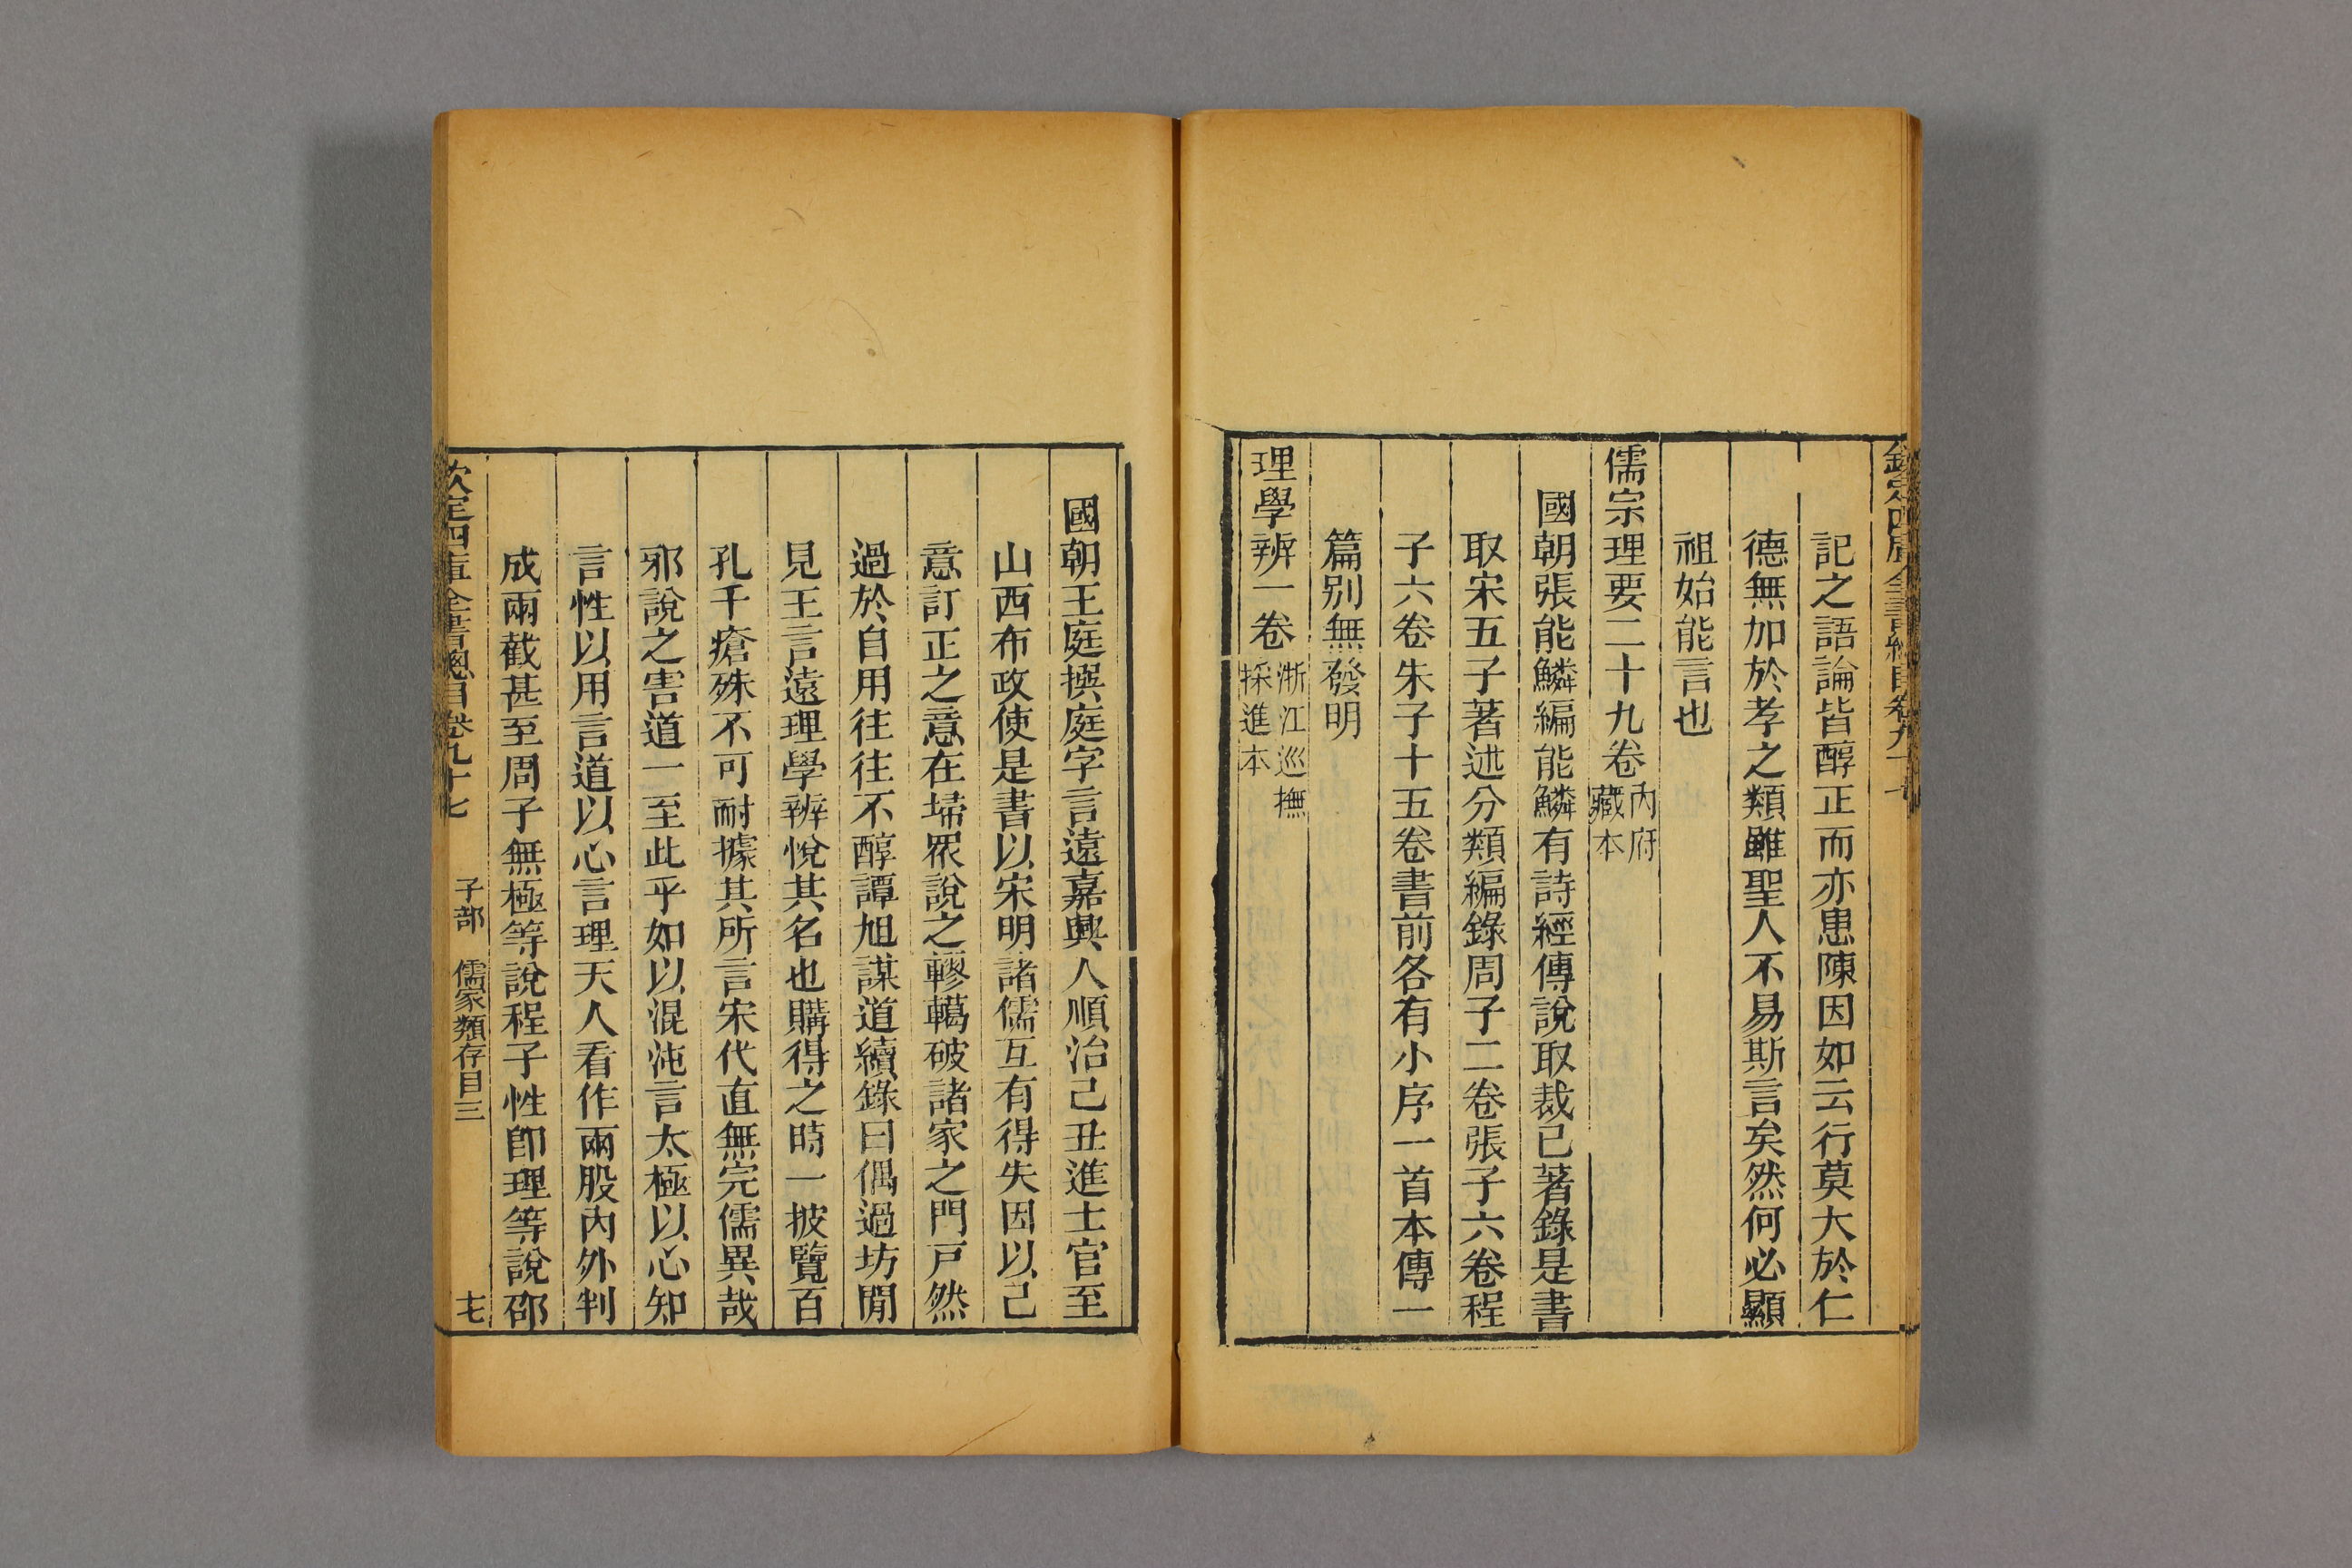 欽定四庫全書總目卷九十七
記之語論皆醇正而亦患陳因如云行莫大於仁
德無加於孝之類雖聖人不易斯言矣然何必顯
祖始能言也
儒宗理要二十九卷內府藏本
國朝張能鱗編能鱗有詩經傳說取裁已著錄是書
取宋五子著述分類編錄周子二卷張子六卷程
子六卷朱子十五卷書前各有小序一首本傳一
篇別無發明
理學辨一卷浙江巡撫採進本
國朝王庭撰庭字言遠嘉興人順治己丑進士官至
山西布政使是書以宋明諸儒互有得失因以己
意訂正之意在埽眾說之轇轕破諸家之門戸然
過於自用往往不醇譚旭謀道續錄曰偶過坊閒
見王言遠理學辨悅其名也購得之時一披覽百
孔千瘡殊不可耐據其所言宋代直無完儒異哉
邪說之害道一至此乎如以混沌言太極以心知
言性以用言道以心言理天人看作兩股內外判
成兩截甚至周子無極等說程子性卽理等說邵
欽定四庫全書總目卷九十七 子部 儒家類存目三 十七